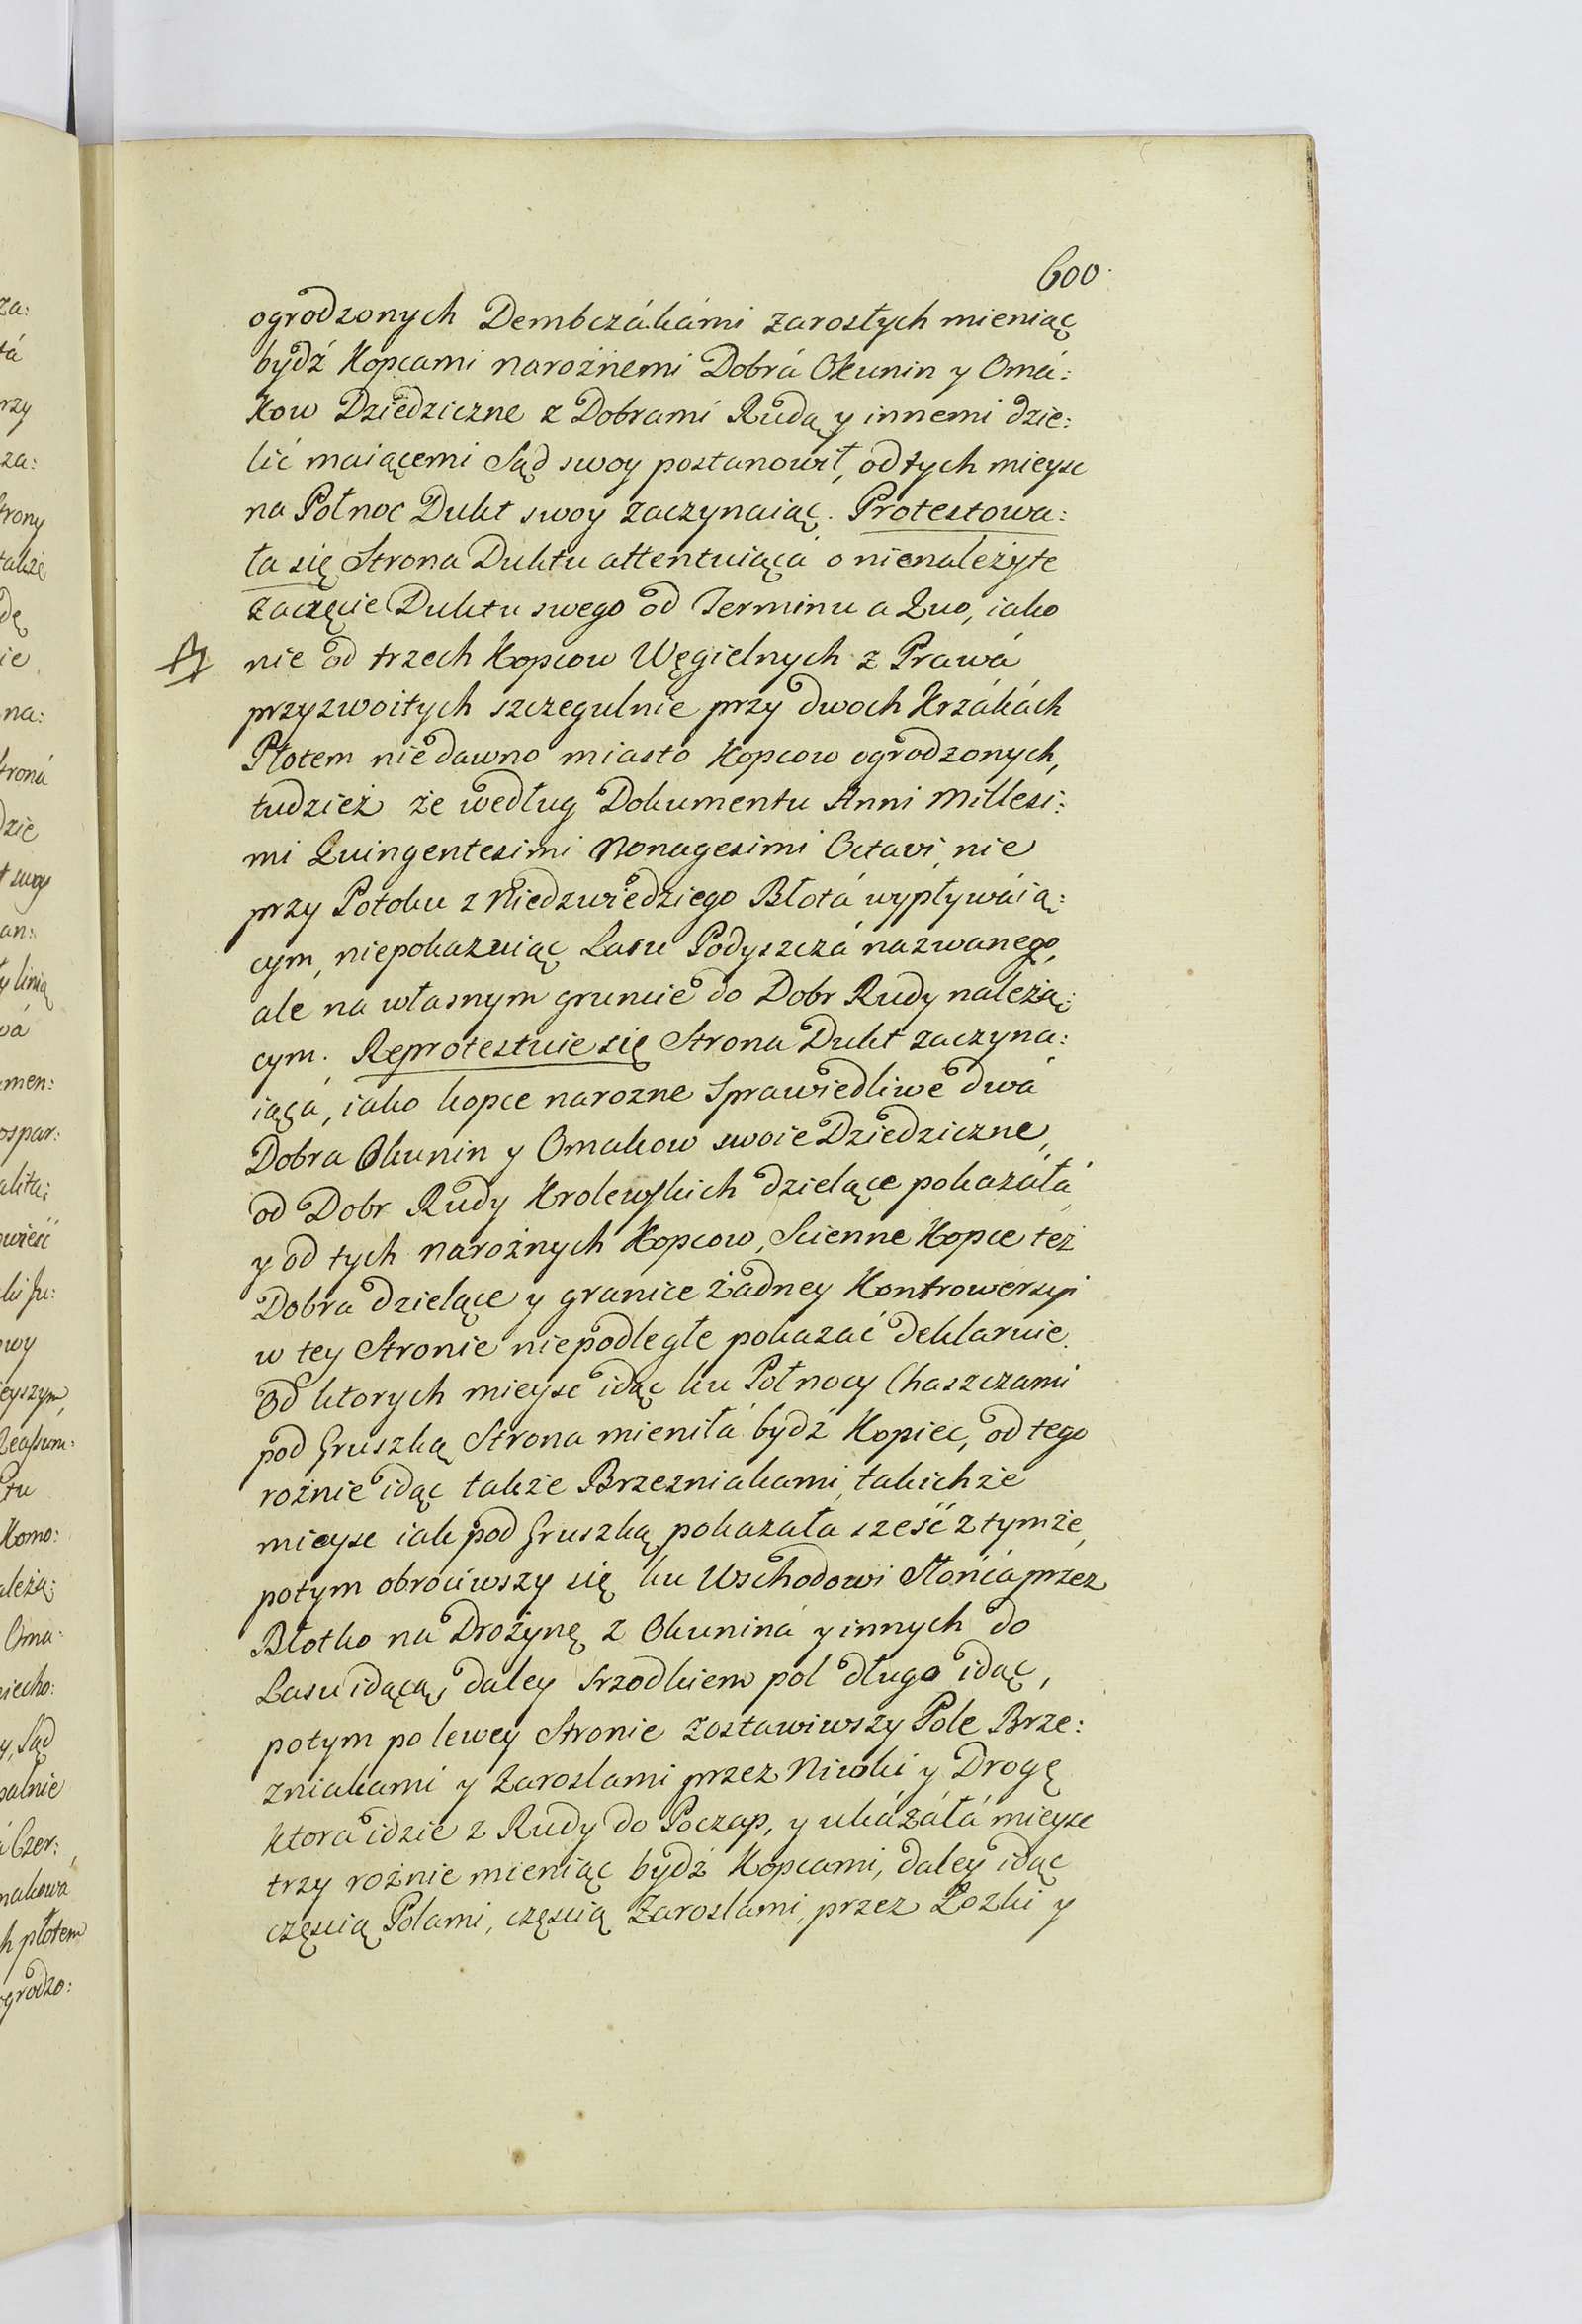 600.
ogrodzonych Dembczákámi zarosłych mieniąc
bydź Kopcami narożnemi Dobrá Okunin y Omá:
kow Dziedziczne z Dobrami Rudą y innemi dzie:
lić maiącemi Sąd swoy postanowił, od tych mieysc
na Połnoc Dukt swoy zaczynaiąc. Protestowa:
ła się Strona Duktu attentuiącá o nienależyte
zaczęcie Duktu swego od Terminu a Quo, iako
nie od trzech Kopcow Węgielnych z Prawá
przyzwoitych szczegulnie przy dwoch Krzákách
Płotem niedawno miasto Kopcow ogrodzonych,
tudzież że według Dokumentu Anni Millesi:
mi Quingentesimi Nonagesimi Octavi, nie
przy Potoku z Niedzwiedziego Błotá wypływáią:
cym, niepokazuiąc Lasu Podyszczá nazwanego,
ale na własnym gruncie do Dobr Rudy należą:
cym. Reprotestuie się Strona Dukt zaczyna:
iącá, iako kopce narozne sprawiedliwe dwá
Dobra Okunin y Omakow swoie Dziedziczne,
od Dobr Rudy Krolewskich dzielące pokazáłá,
y od tych narożnych Kopcow, Scienne Kopce też
Dobra dzielące y granice żadney Kontrowersyi
w tey Stronie niepodległe pokazać deklaruie.
Od ktorych mieysc idąc ku Połnocy Chaszczami
pod Gruszką Strona mieniłá bydź Kopiec, od tego
rożnie idąc także Brzezniakami, takichże
mieysc iak pod Gruszką pokazała sześć z tymże,
potym obrociwszy się ku Wschodowi Słońca przez
Błotko na Drożynę z Okuniná y innych do
Lasu idącą, daley srzodkiem pol długo idąc,
potym po lewey Stronie zostawiwszy Pole Brze:
zniakami y Zaroslami przez Niwki y Drogę
ktora idzie z Rudy do Poczap, y ukázáłá mieysc
trzy rożnie mieniąc bydź Kopcami, daley idąc
częscią Polami, częscią Zaroslami, przez Łozki y